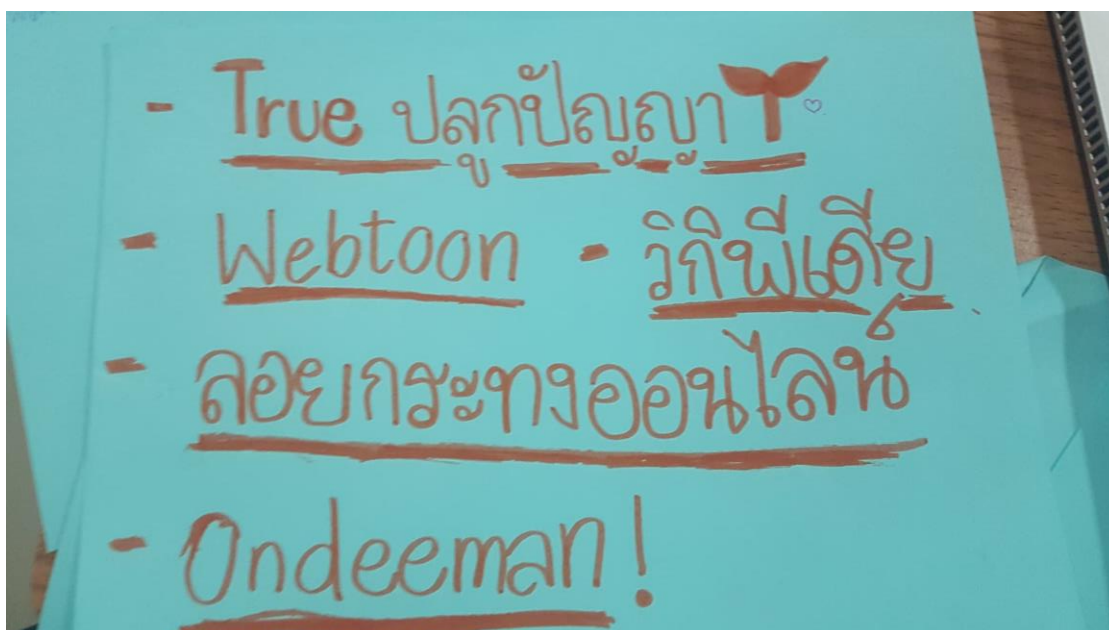 - True ปลูกปัญญา
- Webtoon - วิกิพีเดีย
- ลอยกระทงออนไลน์
- Ondeeman!